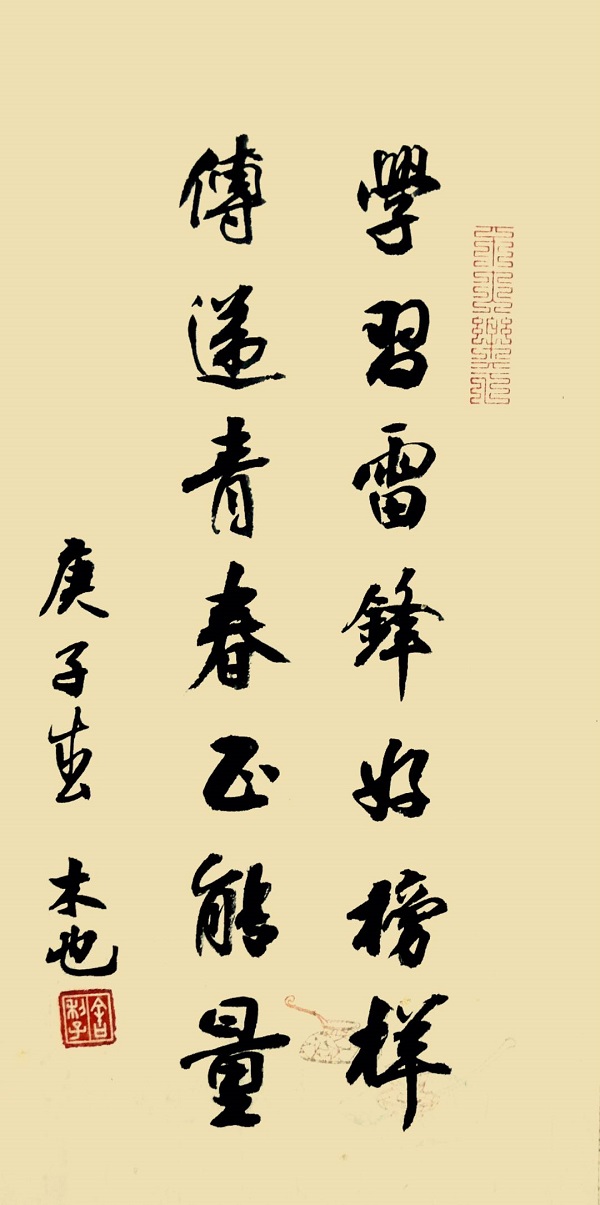 學習雷鋒好榜样
傳递青春正能量
庚子春 木也